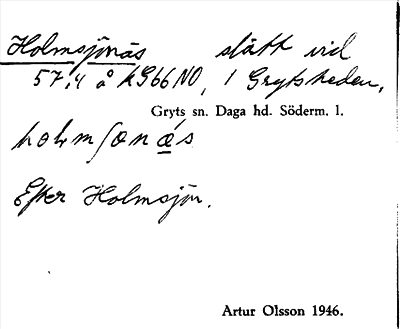 Holmsjönäs slätt vid
57:4 å kG66NO, i Grytsheden,
Gryts sn. Daga hd. Söderm. l.
holmʃɵnæ̀s
Efter Holmsjön.
Artur Olsson 1946.